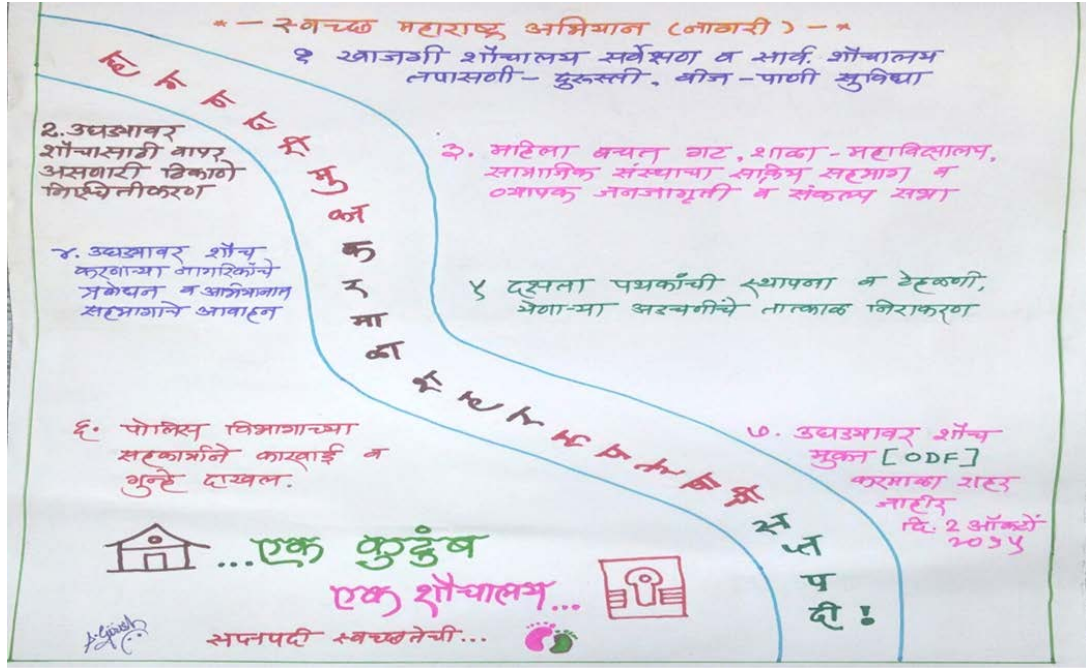 *- स्वच्छ महाराष्ट्र अभियान (नागरी) -*
१ खाजगी शौचालय सर्वेक्षण व सार्व. शौचालय
तपासणी - दुरुस्ती, वीज - पाणी सुविधा
2. उघड्यावर
शौचासाठी वापर
असणारी ठिकाणे
निश्चितीकरण
३. महिला बचत गट, शाळा - महाविद्यालय,
सामाजिक संस्थाचा सक्रिय सहभाग व
व्यापक जनजागृती व संकल्प सभा
४. उघड्यावर शौच
करणाऱ्या नागरिकांचे
प्रबोधन व अभियानात
सहभागाचे आवाहन
५ दक्षता पथकांची स्थापना व टेहळणी,
येणाऱ्या अडचणींचे तात्काळ निराकरण
मुक्त करमाळा
सप्तपदी!
६. पोलिस विभागाच्या
सहकार्याने कारवाई व
गुन्हे दाखल.
७. उघड्यावर शौच
मुक्त [ODF]
करमाळा शहर
जाहीर
दि. 2 ऑक्टो
२०१५
...एक कुटुंब
एक शौचालय...
सप्तपदी स्वच्छतेची...